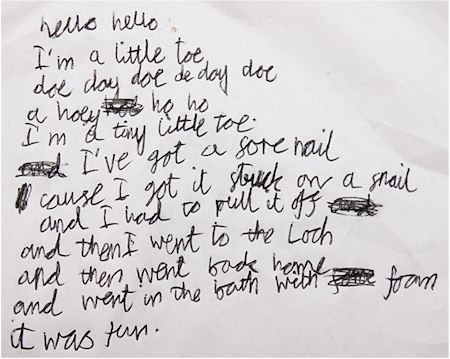 hello hello
I'm a little toe
doe day doe de day doe
a hoey ho ho
I'm a tiny little toe.
I've got a sore nail
cause I got it stuck on a snail
and I had to pull it off
and then I went to the Loch
and then went back home
and went in the bath with foam
it was fun.